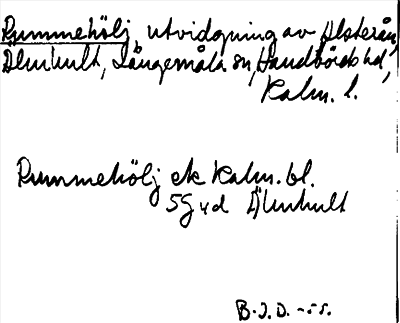 Rummehölj, utvidgning av Alsterån,
Älmhult, Långemåla sn, Handbörds hd,
Kalm. l.
Rummehölj ek Kalm. bl.
5G vd Älmhult
B.I.D. -55.